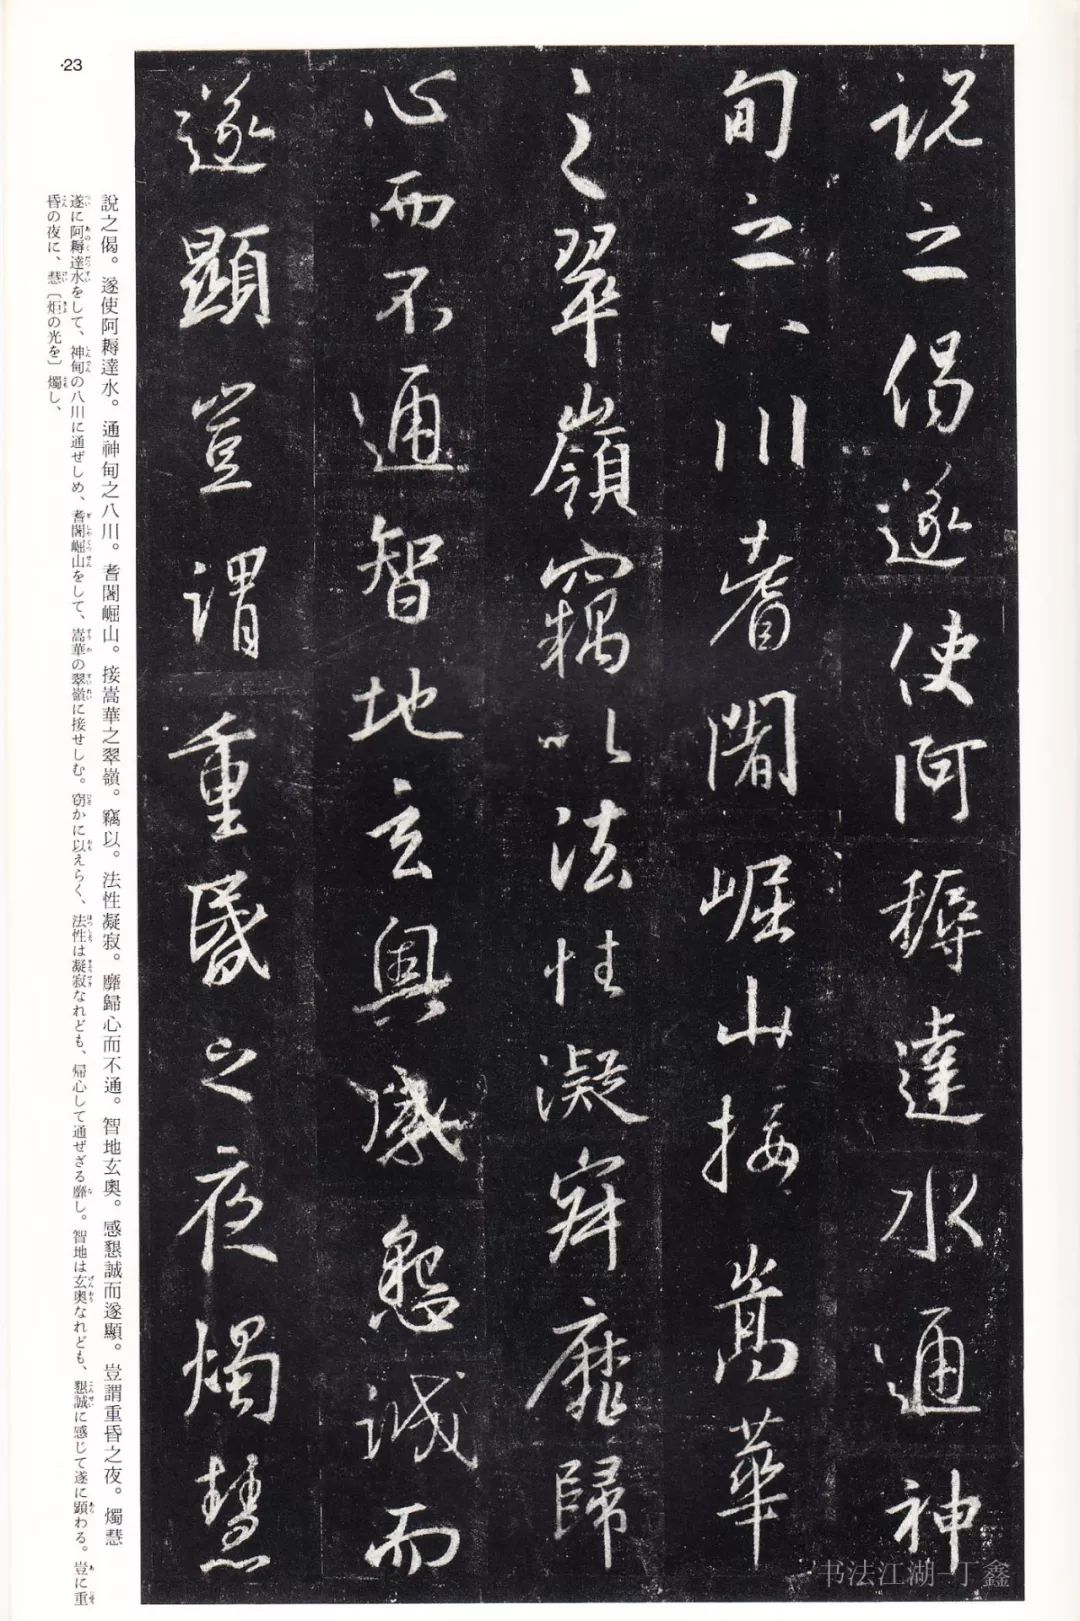 説之偈遂使阿耨達水通神
甸之八川耆闍崛山接嵩華
之翠嶺竊以法性凝寂靡歸
心而不通智地玄奥感懇誠而
遂顯豈謂重昏之夜燭慧
說之偈。遂使阿耨達水。通神甸之八川。耆闍崛山。接嵩華之翠嶺。竊以。法性凝寂。靡歸心而不通。智地玄奧。感懇誠而遂顯。豈謂重昏之夜。燭慧
遂に阿耨達水をして、神甸の八川に通ぜしめ、耆闍崛山をして、嵩華の翠嶺に接せしむ。窃かに以えらく、法性は凝寂なれども、帰心して通ぜざる靡し。智地は玄奥なれども、懇誠に感じて遂に顕わる。豈に重
昏の夜に、慧〔炬の光を〕燭し、
·23
书法江湖-丁鑫